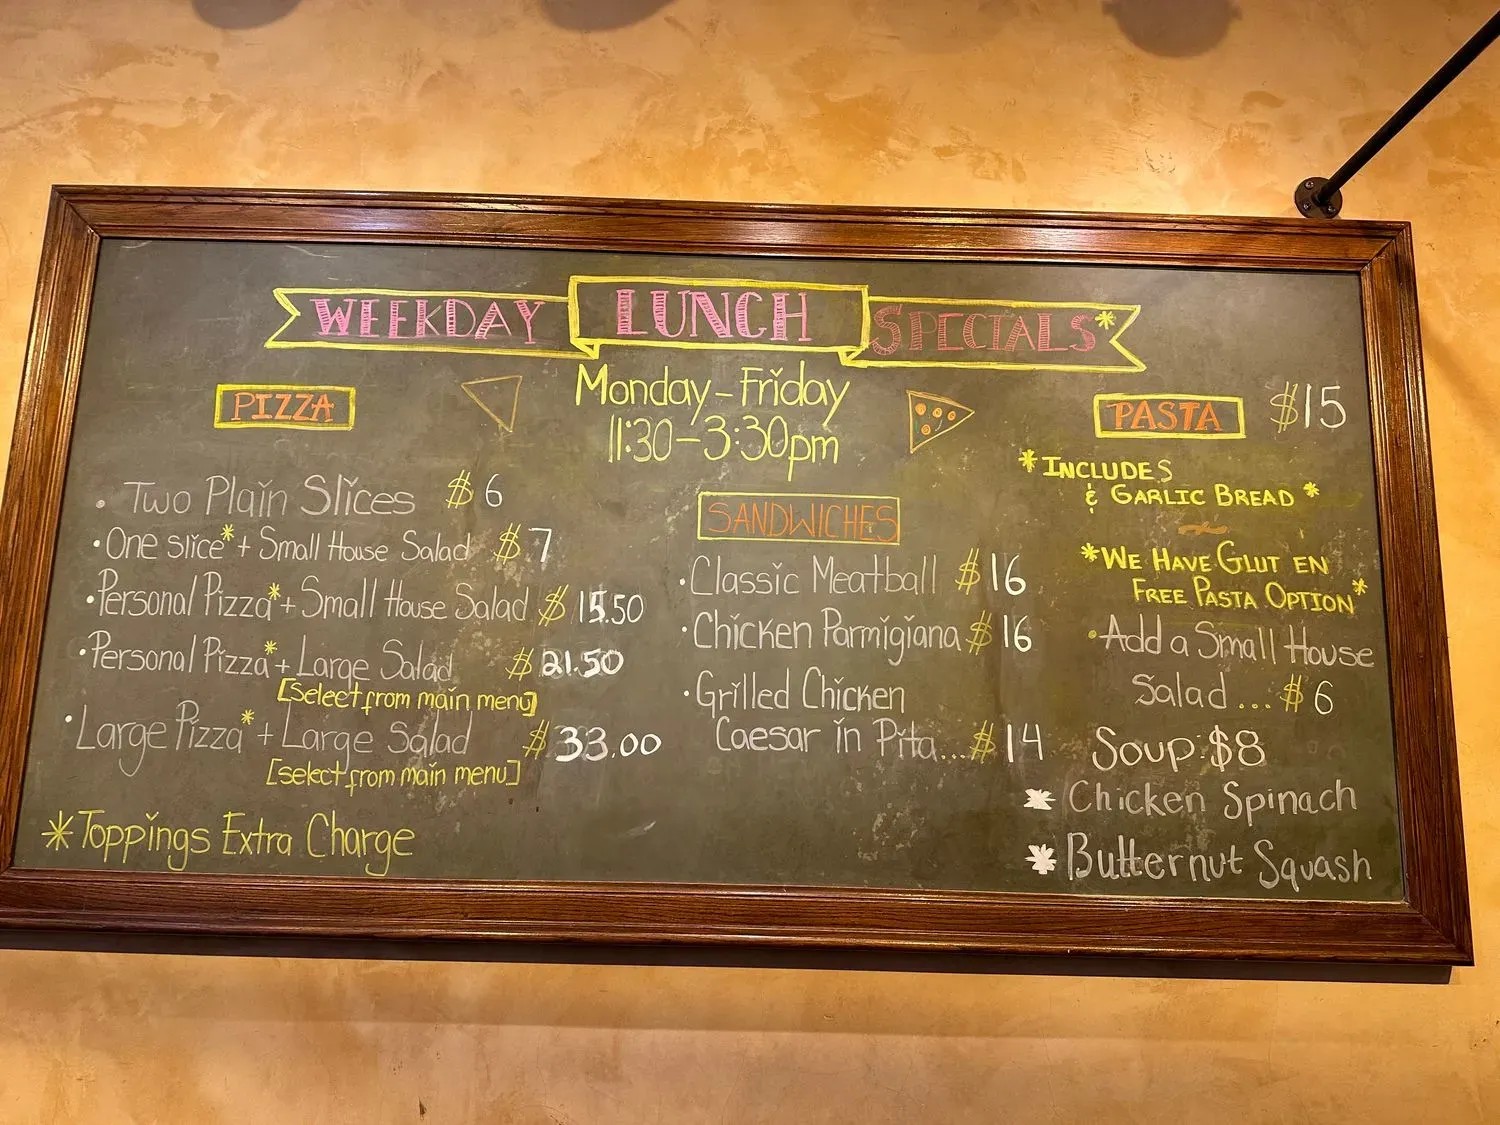 WEEKDAY LUNCH SPECIALS*
Monday-Friday
11:30-3:30pm
PIZZA
• Two Plain Slices $6
• One slice* + Small House Salad $7
• Personal Pizza* + Small House Salad $15.50
• Personal Pizza* + Large Salad $21.50
[select from main menu]
• Large Pizza* + Large Salad $33.00
[select from main menu]
*Toppings Extra Charge
SANDWICHES
• Classic Meatball $16
• Chicken Parmigiana $16
• Grilled Chicken
Caesar in Pita...$14
PASTA $15
*INCLUDES
& GARLIC BREAD*
*WE HAVE GLUT EN
FREE PASTA OPTION*
• Add a Small House
Salad...$6
Soup: $8
* Chicken Spinach
* Butternut Squash